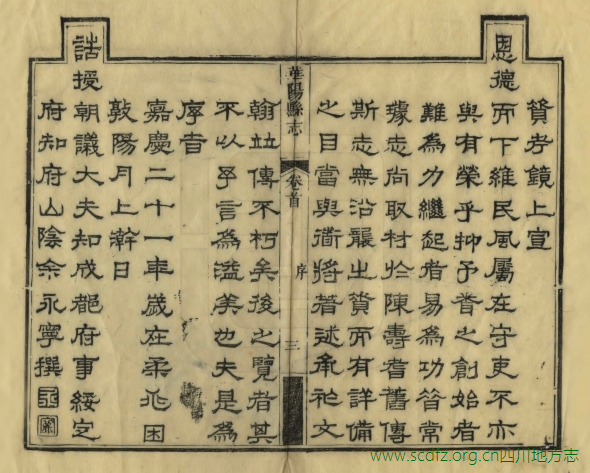 資考鏡上宣
恩德而下維民風屬在守吏不亦
與有榮乎抑予之創始者
難為力繼起者易為功昔常
璩志尚取材於陳壽耆舊傳
斯志無沿襲之資而有詳備
之目當與衜將著述承祚文
華陽縣志 卷首 序 三
翰竝傳不朽矣後之覽者其
不以予言為溢美也夫是為
序旹
嘉慶二十一年歲在柔兆困
敦陽月上澣日
誥授朝議大夫知成都府事綏定
府知府山陰余永寧撰
www.scdfz.org.cn四川地方志